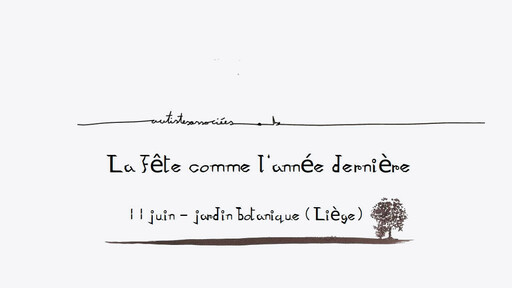 artistesassociées.be
La fête comme l'année dernière
11 juin - jardin botanique (Liège)